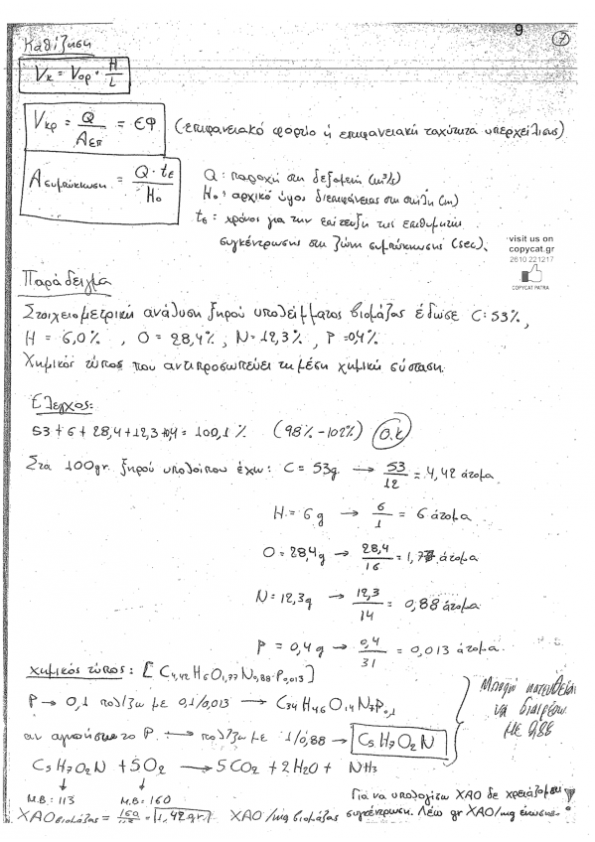 9
7
Καθίζηση
Vκ = Vορ · H/L
Vκρ = Q/Aεπ = εφ (επιφανειακό φορτίο ή επιφανειακή ταχύτητα υπερχείλισης)
Aσυμπύκνωσης = Q · tε/Hο
Q: παροχή στη δεξαμενή (m³/s)
Hο: αρχικό ύψος διεπιφάνειας στη στήλη (m)
tε: χρόνος για την επίτευξη της επιθυμητής
συγκέντρωσης στη ζώνη συμπύκνωσης (sec).
visit us on
copycat.gr
2610 221217
COPYCAT PATRA
Παράδειγμα
Στοιχειομετρική ανάλυση ξηρού υπολείμματος βιομάζας έδωσε C: 53%,
H = 6,0%, O = 28,4%, N = 12,3%, P = 0,4%
Χημικός τύπος που αντιπροσωπεύει τη μέση χημική σύσταση.
Έλεγχος:
53 + 6 + 28,4 + 12,3 + 0,4 = 100,1% (98% - 102%) O.K
Στα 100gr. ξηρού υπολοίπου έχω: C = 53g → 53/12 = 4,42 άτομα
H = 6g → 6/1 = 6 άτομα
O = 28,4g → 28,4/16 = 1,77 άτομα
N = 12,3g → 12,3/14 = 0,88 άτομα
P = 0,4g → 0,4/31 = 0,013 άτομα.
χημικός τύπος: [C4,42 H6 O1,77 N0,88 P0,013]
P → 0,1 πολ/ζω με 0,1/0,013 → C34 H46 O14 N7 P0,1
αν αγνοήσω το P. → πολ/ζω με 1/0,88 → C5H7O2N
Μπορώ κατευθείαν
να διαιρέσω
με 0,88
C5H7O2N + 5O2 → 5CO2 + 2H2O + NH3
M.B.: 113 M.B.: 160
Για να υπολογίζω ΧΑΟ δε χρειάζομαι
ΧΑΟ βιομάζας = 160/113 = 1,42gr. ΧΑΟ/mg βιομάζας συγκέντρωση. Λέω gr ΧΑΟ/mg ένωσης.